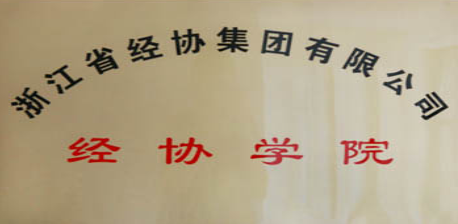 浙江省经协集团有限公司
经协学院